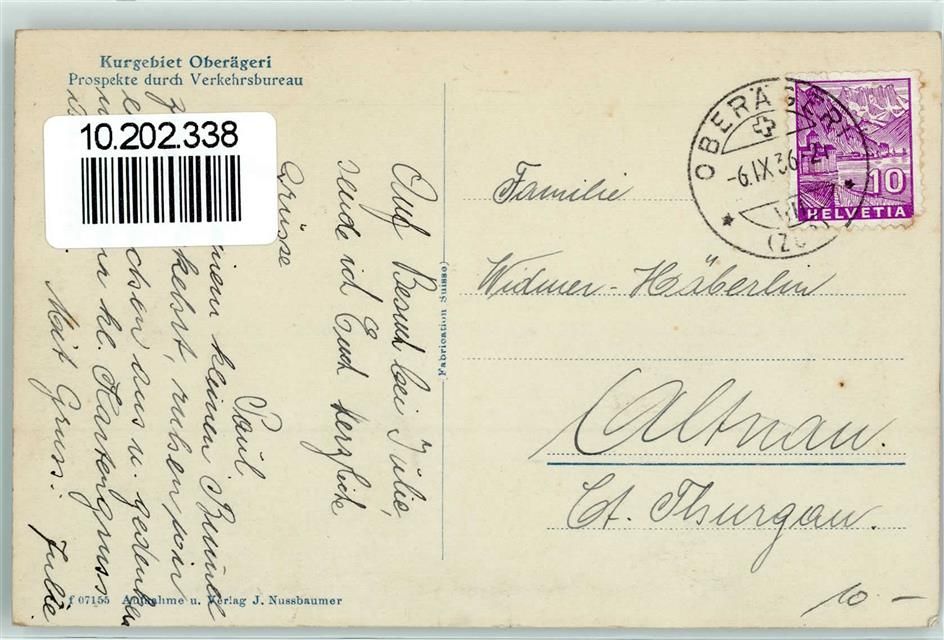 Kurgebiet Oberägeri
Prospekte durch Verkehrsbureau
10.202.338
Auf Besuch bei Julie,
sende ich Euch herzliche
Grüsse
Paul.
einem kleinen Bummel
kehrt, ruhen wir
aus u. gedenken
kl. Kartengruss
Mit Gruss.
Julie
Fabrication Suisse
OBERÄGERI
-6.IX.36
(ZUG)
10
HELVETIA
Familie
Widmer-Häberlin
Altnau.
Ct. Thurgau.
f 07155 Aufnahme u. Verlag J. Nussbaumer
10 -